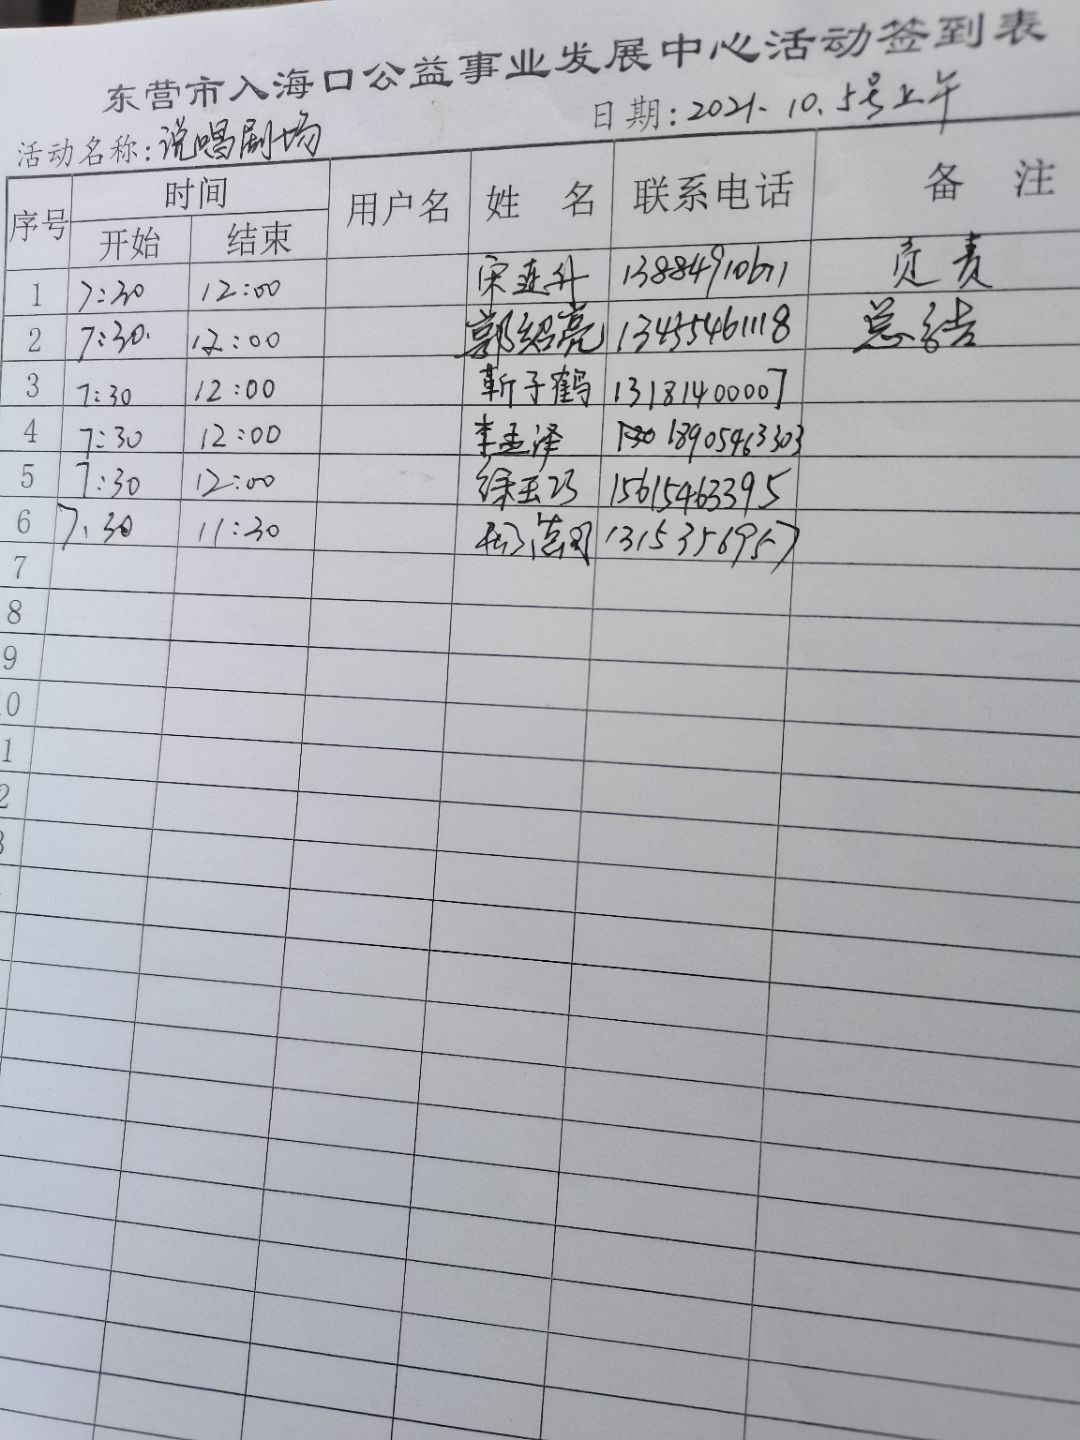 东营市入海口公益事业发展中心活动签到表
活动名称:说唱剧场 日期:2021.10.5号上午
序号 时间 用户名 姓名 联系电话 备注
开始 结束
1 7:30 12:00 宋连升 负责
2 7:30 12:00 郭绍亮 13435461118 总结
3 7:30 12:00 靳子鹤 13181400007
4 7:30 12:00 李孟泽 18905463303
5 7:30 12:00 徐玉巧 15615463395
6 7:30 11:30 1315356957
7
8
9
10